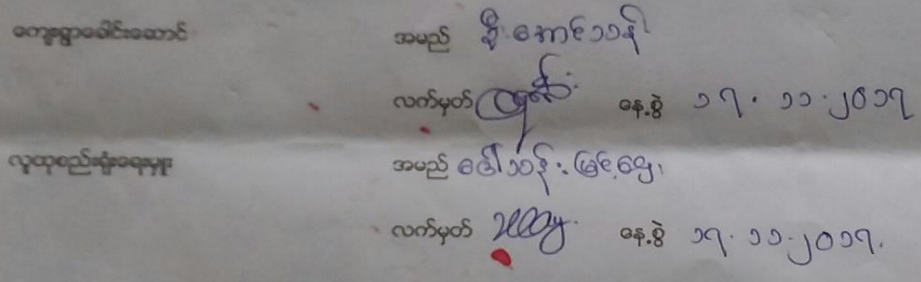 ကျေးရွာခေါင်းဆောင် အမည် ဦးအောင်သန်း
လက်မှတ် နေ့စွဲ ၁၇.၁၁.၂၀၁၇
လူထုစည်းရုံးရေးမှူး အမည် ဒေါ်သန်းမြင့်ဌေး
လက်မှတ် နေ့စွဲ ၁၇.၁၁.၂၀၁၇.